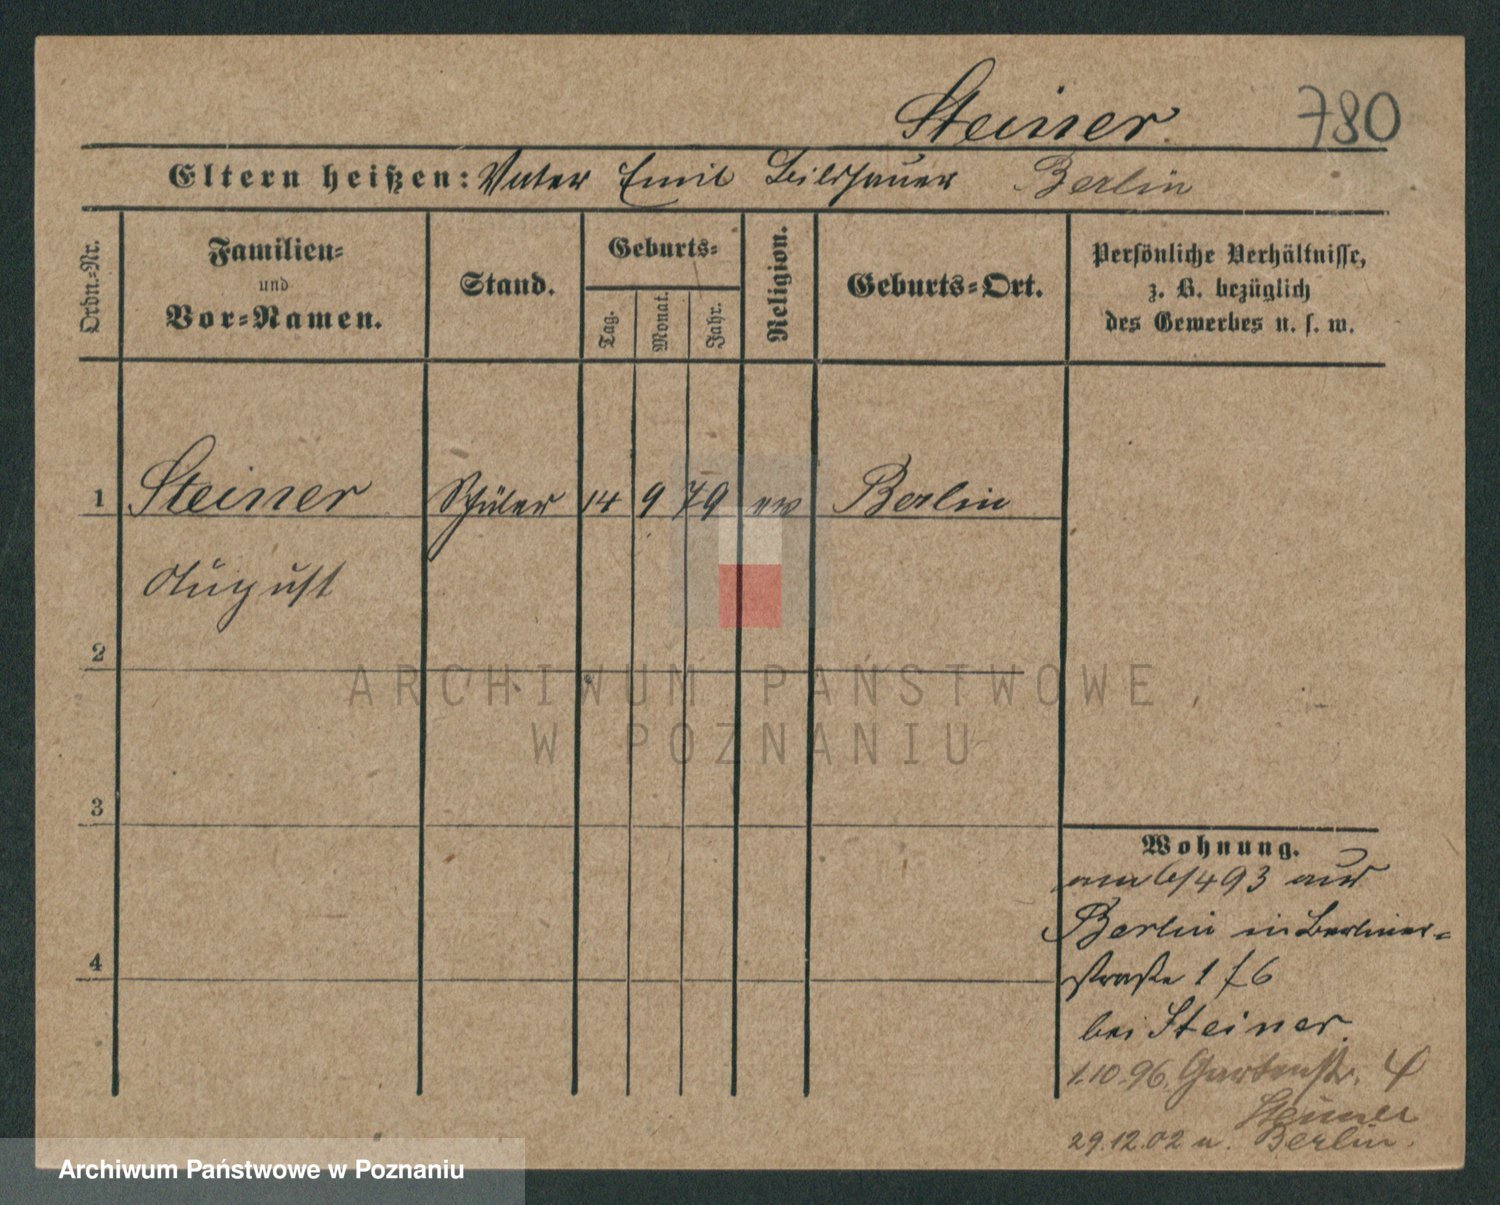 Steiner. 780
Eltern heißen: Vater Emil Bildhauer Berlin
Ordn.-Nr.
Familien-
und
Vor-Namen.
Stand.
Geburts-
Tag.
Monat.
Jahr.
Religion.
Geburts-Ort.
Persönliche Verhältnisse,
z. B. bezüglich
des Gewerbes u. s. w.
1 Steiner Schüler 14 9 79 ev Berlin
August
2
ARCHIWUM PAŃSTWOWE
W POZNANIU
3
4
Wohnung.
am 6/4 93 aus
Berlin in Berliner-
straße 1
bei Steiner.
1.10.96. Gartenstr. 4
Steiner
29.12.02 n. Berlin.
Archiwum Państwowe w Poznaniu